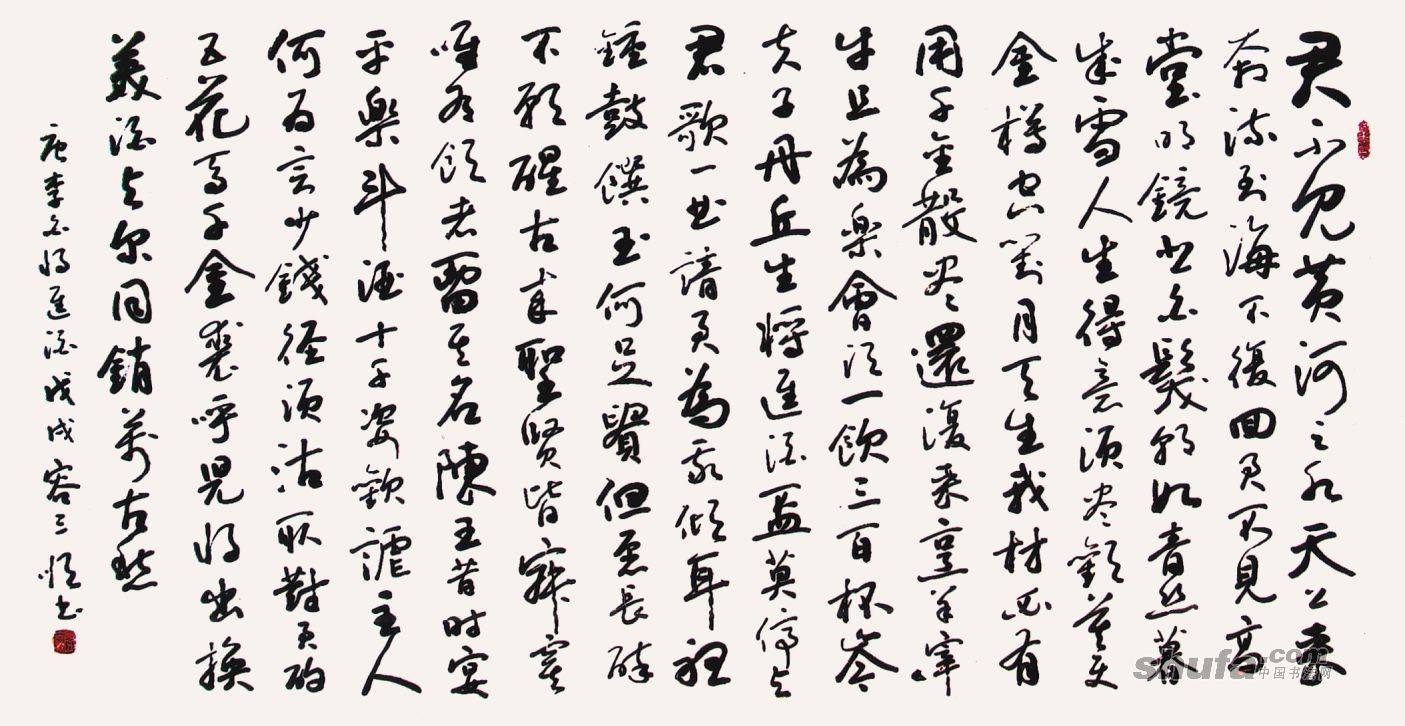 君不见黄河之水天上来
奔流到海不復回君不見高
堂明鏡悲白髮朝如青丝暮
成雪人生得意须尽歡莫使
金樽空對月天生我材必有
用千金散尽還復来烹羊宰
牛且為樂會须一飲三百杯岑
夫子丹丘生將進酒盃莫停与
君歌一曲請君為我傾耳聽
鐘鼓饌玉何足貴但愿長醉
不願醒古来聖賢皆寂寞
唯有飲者留其名陳王昔时宴
平樂斗酒十千恣歡謔主人
何為言少錢徑须沽取對君酌
五花馬千金裘呼兒将出換
美酒与尔同銷萬古愁
唐李白将進酒戊戌书
shufa.com
中国书法网